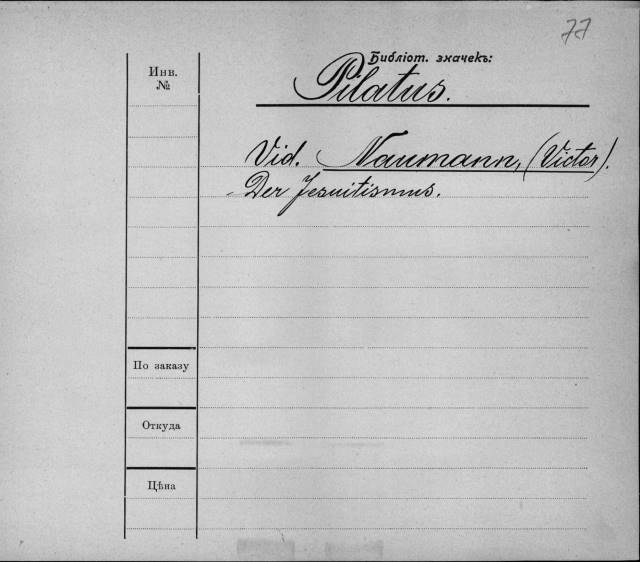 77
Библіот. значекъ:
Инв.
№
Pilatus.
Vid. Naumann, (Victor).
Der Jesuitismus.
По заказу
Откуда
Цѣна